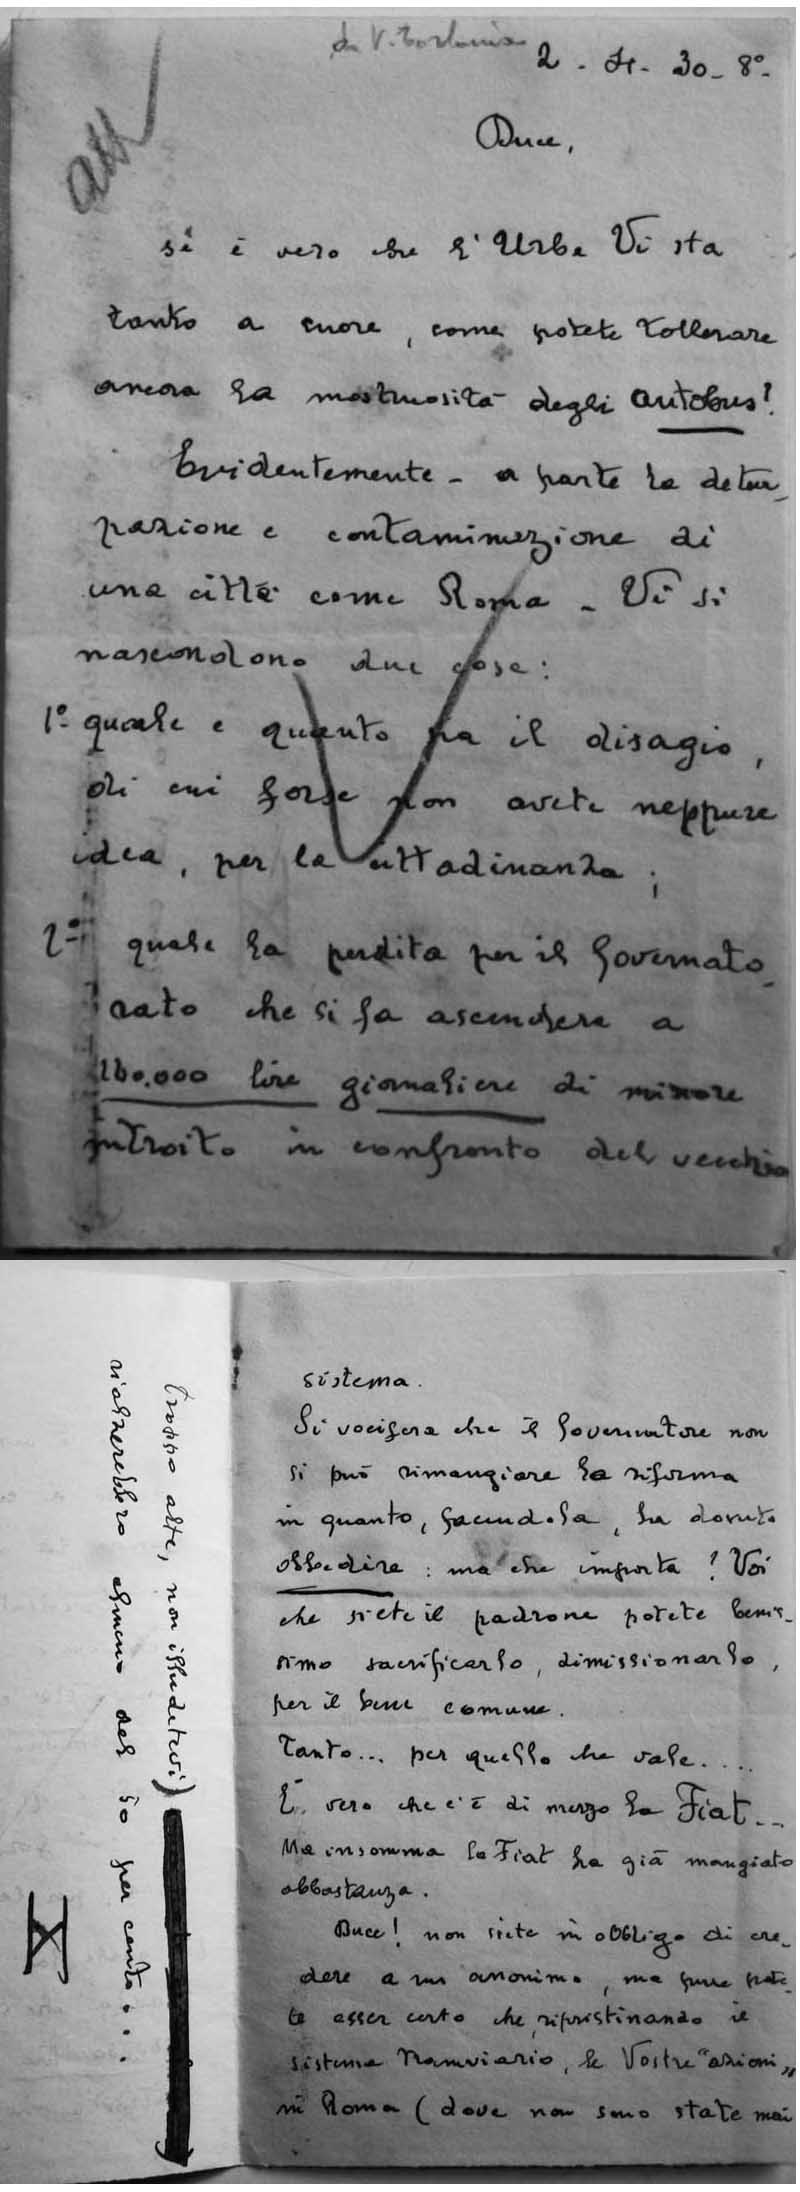 da V. Torlonia
2 - 4 - 30 - 8º -
att
Duce,
se è vero che l'Urbe Vi sta
tanto a cuore, come potete tollerare
ancora la mostruosità degli autobus?
Evidentemente - a parte la detur-
pazione e contaminazione di
una città come Roma - Vi si
nascondono due cose:
1º- quale e quanto sia il disagio,
di cui forse non avete neppure
idea, per la cittadinanza;
2º- quale la perdita per il Governato-
rato che si fa ascendere a
160.000 lire giornaliere di minore
introito in confronto del vecchio
sistema.
Si vocifera che il Governatore non
si può rimangiare la riforma
in quanto, facendola, ha dovuto
obbedire: ma che importa? Voi
che siete il padrone potete benis-
simo sacrificarlo, dimissionarlo,
per il bene comune.
Tanto... per quello che vale....
È vero che c'è di mezzo la Fiat...
Ma insomma la Fiat ha già mangiato
abbastanza.
Duce! non siete in obbligo di cre-
dere a un anonimo, ma pure pote-
te esser certo che, ripristinando il
sistema tramviario, le Vostre "azioni"
in Roma (dove non sono state mai
troppo alte, non illudetevi)
rialzerebbero almeno del 50 per cento...
X